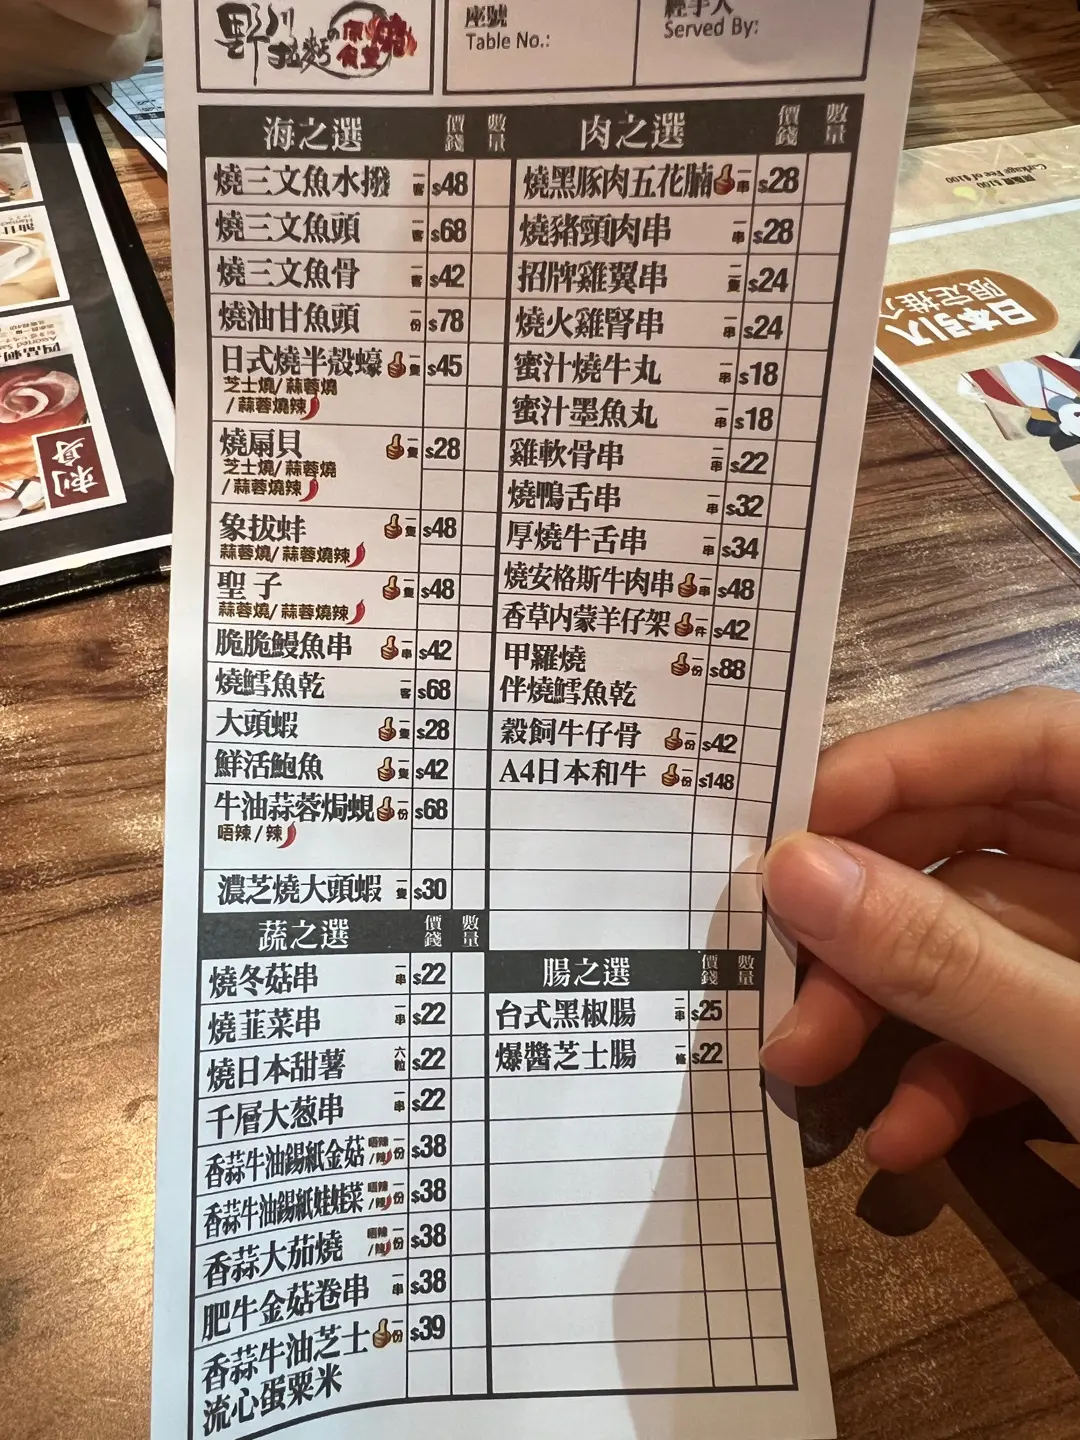 座號
Table No.:
經手人
Served By:
海之選 價錢 數量
燒三文魚水撥 一客 $48
燒三文魚頭 一客 $68
燒三文魚骨 一客 $42
燒油甘魚頭 一份 $78
日式燒半殼蠔 一隻 $45
芝士燒/蒜蓉燒
/蒜蓉燒辣
燒扇貝 一隻 $28
芝士燒/蒜蓉燒
/蒜蓉燒辣
象拔蚌 一隻 $48
蒜蓉燒/蒜蓉燒辣
聖子 一隻 $48
蒜蓉燒/蒜蓉燒辣
脆脆鰻魚串 一串 $42
燒鱈魚乾 一客 $68
大頭蝦 一隻 $28
鮮活鮑魚 一隻 $42
牛油蒜蓉焗蜆 一份 $68
唔辣/辣
濃芝燒大頭蝦 一隻 $30
蔬之選 價錢 數量
燒冬菇串 一串 $22
燒韮菜串 一串 $22
燒日本甜薯 六粒 $22
千層大葱串 一串 $22
香蒜牛油錫紙金菇 唔辣/辣 一份 $38
香蒜牛油錫紙娃娃菜 唔辣/辣 一份 $38
香蒜大茄燒 唔辣/辣 一份 $38
肥牛金菇卷串 一串 $38
香蒜牛油芝士 一份 $39
流心蛋粟米
肉之選 價錢 數量
燒黑豚肉五花腩 一串 $28
燒豬頸肉串 一串 $28
招牌雞翼串 二隻 $24
燒火雞腎串 一串 $24
蜜汁燒牛丸 一串 $18
蜜汁墨魚丸 一串 $18
雞軟骨串 二串 $22
燒鴨舌串 一串 $32
厚燒牛舌串 一串 $34
燒安格斯牛肉串 一串 $48
香草內蒙羊仔架 一件 $42
甲羅燒 一份 $88
伴燒鱈魚乾
穀飼牛仔骨 一份 $42
A4日本和牛 一份 $148
腸之選 價錢 數量
台式黑椒腸 二串 $25
爆醬芝士腸 一條 $22
刺身
日本引入